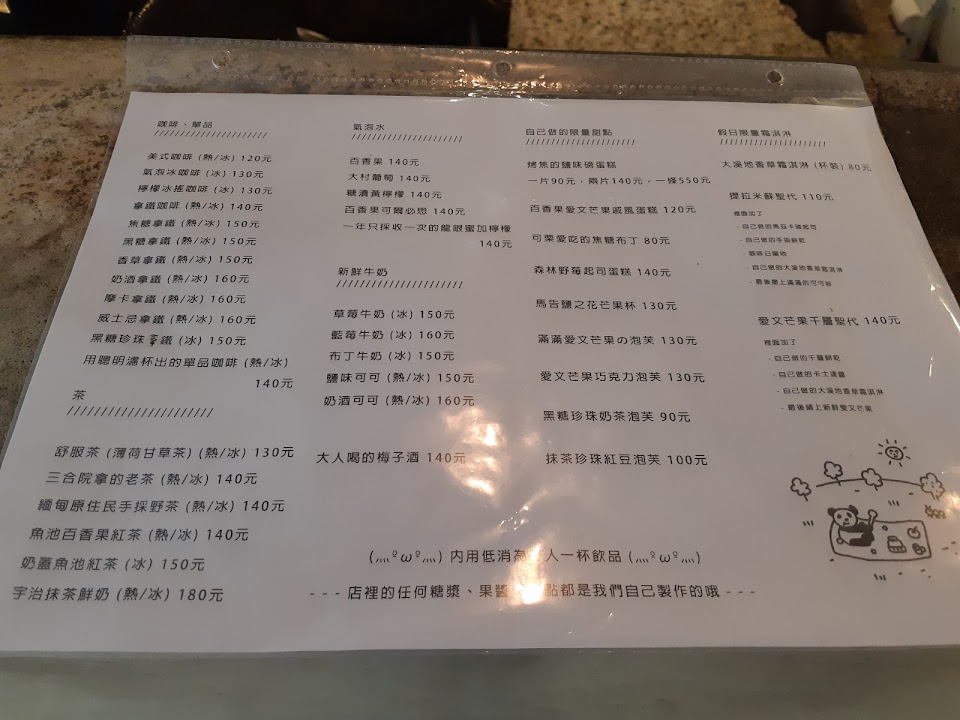 咖啡、單品
////////////////////////
美式咖啡 (熱/冰) 120元
氣泡冰咖啡 (冰) 130元
檸檬冰搖咖啡 (冰) 130元
拿鐵咖啡 (熱/冰) 140元
焦糖拿鐵 (熱/冰) 150元
黑糖拿鐵 (熱/冰) 150元
香草拿鐵 (熱/冰) 150元
奶酒拿鐵 (熱/冰) 160元
摩卡拿鐵 (熱/冰) 160元
威士忌拿鐵 (熱/冰) 160元
黑糖珍珠拿鐵 (冰) 150元
用聰明濾杯出的單品咖啡 (熱/冰)
140元
茶
////////////////////////
舒服茶 (薄荷甘草茶) (熱/冰) 130元
三合院拿的老茶 (熱/冰) 140元
緬甸原住民手採野茶 (熱/冰) 140元
魚池百香果紅茶 (熱/冰) 140元
奶蓋魚池紅茶 (冰) 150元
宇治抹茶鮮奶 (熱/冰) 180元
氣泡水
////////////////////////
百香果 140元
大村葡萄 140元
糖漬黃檸檬 140元
百香果可爾必思 140元
一年只採收一次的龍眼蜜加檸檬
140元
新鮮牛奶
////////////////////////
草莓牛奶 (冰) 150元
藍莓牛奶 (冰) 160元
布丁牛奶 (冰) 150元
鹽味可可 (熱/冰) 150元
奶酒可可 (熱/冰) 160元
大人喝的梅子酒 140元
自己做的限量甜點
////////////////////////
烤焦的鹽味磅蛋糕
一片90元，兩片140元，一條550元
百香果愛文芒果戚風蛋糕 120元
可栗愛吃的焦糖布丁 80元
森林野莓起司蛋糕 140元
馬告鹽之花芒果杯 130元
滿滿愛文芒果の泡芙 130元
愛文芒果巧克力泡芙 130元
黑糖珍珠奶茶泡芙 90元
抹茶珍珠紅豆泡芙 100元
假日限量霜淇淋
////////////////////////
大溪地香草霜淇淋 (杯裝) 80元
提拉米蘇聖代 110元
裡面加了
- 自己做的馬茲卡彭起司
- 自己做的手指餅乾
- 咖啡日曬桔
- 自己做的大溪地香草霜淇淋
- 最後灑上滿滿的可可粉
愛文芒果千層聖代 140元
裡面加了
- 自己做的千層餅乾
- 自己做的卡士達醬
- 自己做的大溪地香草霜淇淋
- 最後鋪上新鮮愛文芒果
(灬ºωº灬) 內用低消為 人一杯飲品 (灬ºωº灬)
- - - 店裡的任何糖漿、果醬 點都是我們自己製作的哦 - - -